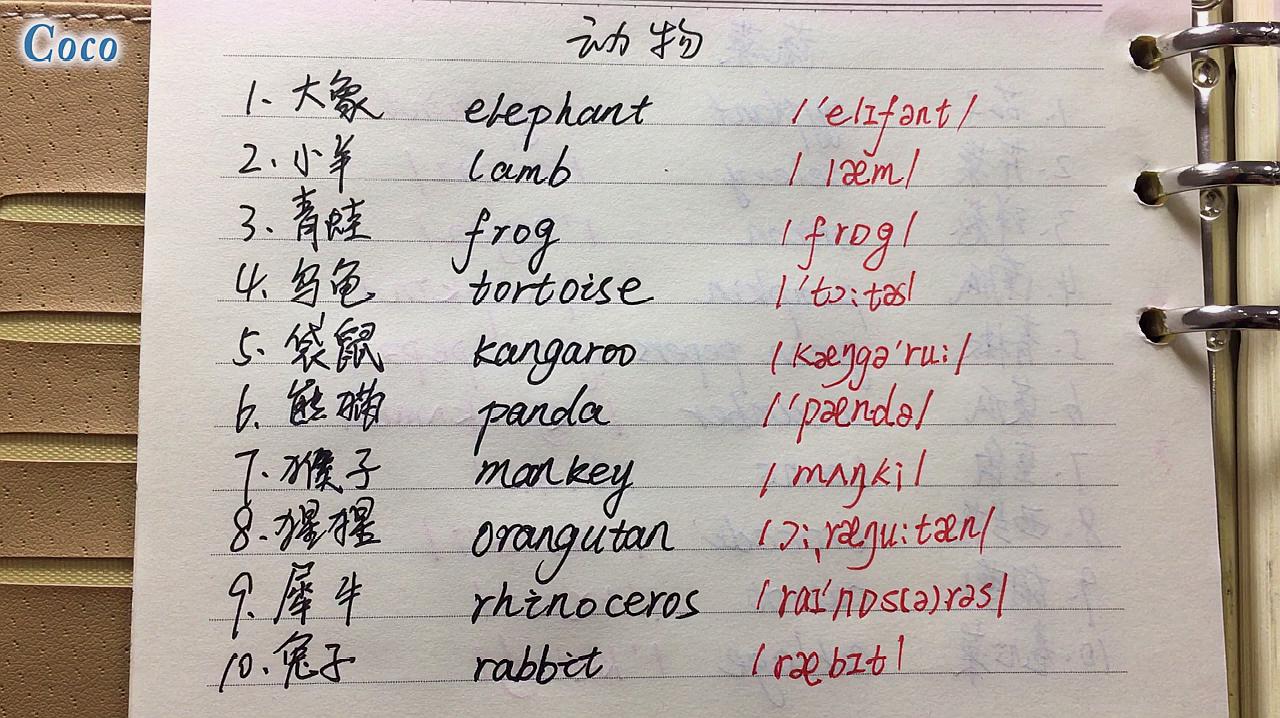 Coco
动物
1. 大象 elephant /'elɪfənt/
2. 小羊 lamb / læm/
3. 青蛙 frog /frɒg/
4. 乌龟 tortoise /'tɔ:təs/
5. 袋鼠 kangaroo /kæŋgə'ru:/
6. 熊猫 panda /'pændə/
7. 猴子 monkey /mʌŋki/
8. 猩猩 orangutan /ɔ:ˌræŋu:tæn/
9. 犀牛 rhinoceros /raɪ'nɒs(ə)rəs/
10. 兔子 rabbit /ræbɪt/